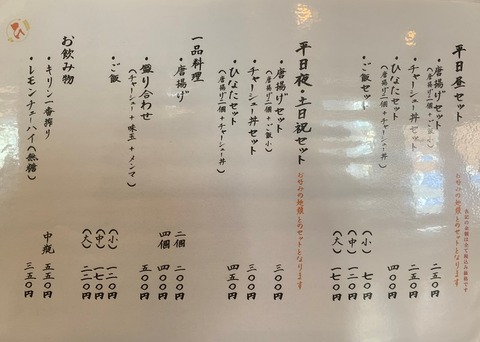 平日昼セット
お好みの麺類とのセットとなります
表記の金額は全て税込み価格です
・唐揚げセット 二五〇円
(唐揚げ二個+ご飯小)
・チャーシュー丼セット 二五〇円
・ひなたセット 四〇〇円
(唐揚げ二個+チャーシュー丼)
・ご飯セット (小) 七〇円
(中) 一二〇円
(大) 一七〇円
平日夜・土日祝セット
お好みの麺類とのセットとなります
・唐揚げセット 三〇〇円
(唐揚げ二個+ご飯小)
・チャーシュー丼セット 三〇〇円
・ひなたセット 四五〇円
(唐揚げ二個+チャーシュー丼)
一品料理
・唐揚げ 二個 二〇〇円
四個 四〇〇円
・盛り合わせ 五〇〇円
(チャーシュー+味玉+メンマ)
・ご飯 (小) 一二〇円
(中) 一七〇円
(大) 二二〇円
お飲み物
・キリン一番搾り 中瓶 五五〇円
・レモンチューハイ(無糖) 三五〇円